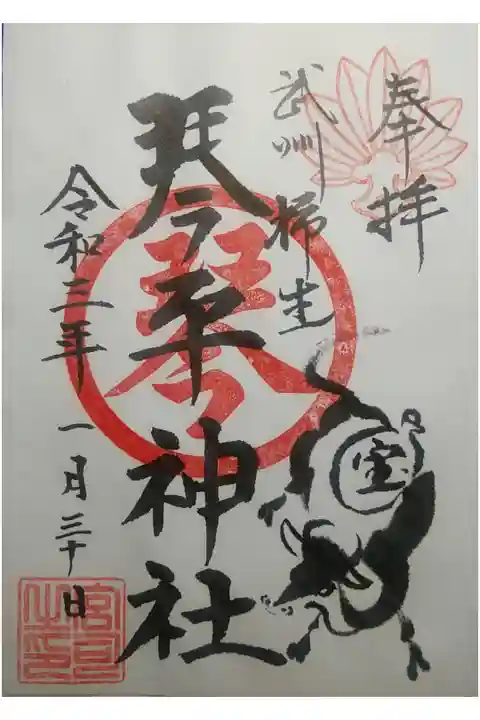 奉拝
武州 柿生
琴平神社
琴
宝
令和三年 一月三十日
宮司之印